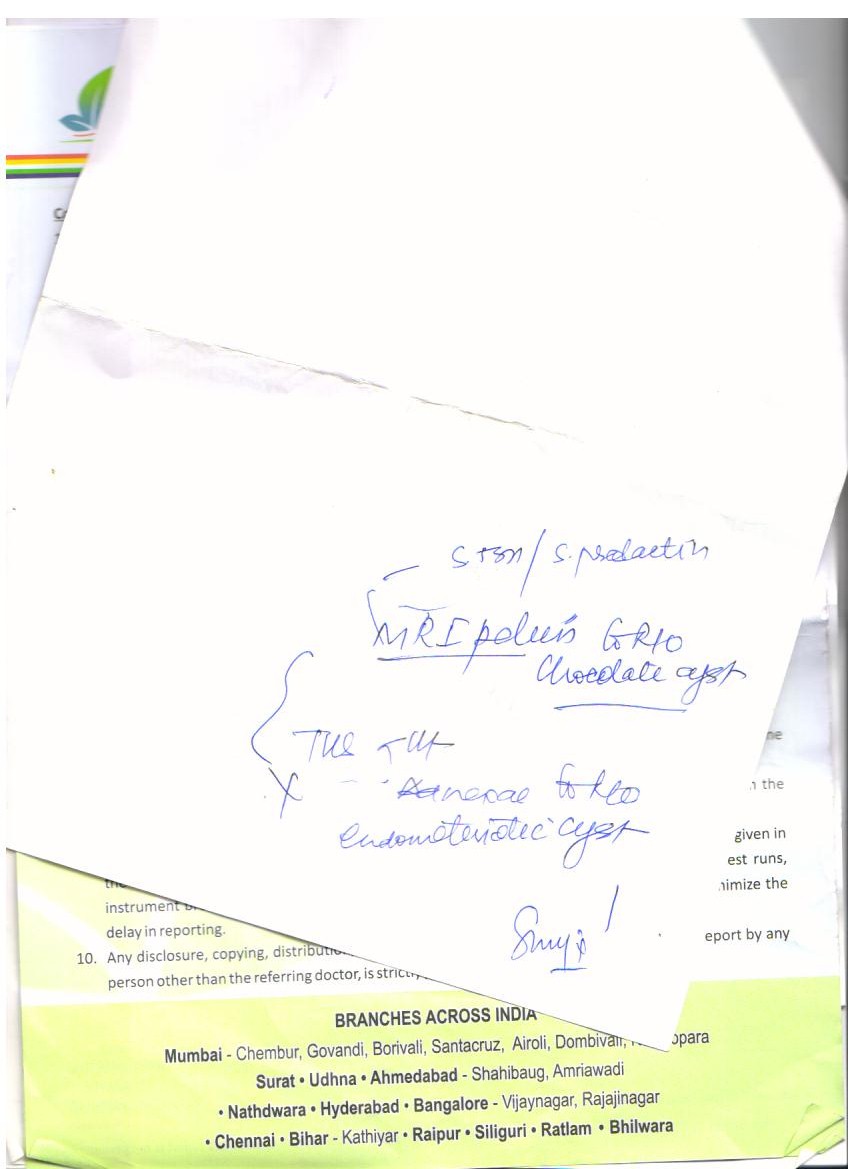 S. TSH / S. prolactin
MRI pelvis to R/O
Chocolate cyst
TUS
X adnexae to R/O
endometriotic cyst
ne
n the
given in
est runs,
nimize the
instrument
delay in reporting.
eport by any
10. Any disclosure, copying, distributio
person other than the referring doctor, is strictly
BRANCHES ACROSS INDIA
Mumbai - Chembur, Govandi, Borivali, Santacruz, Airoli, Dombivali, opara
Surat • Udhna • Ahmedabad - Shahibaug, Amriawadi
• Nathdwara • Hyderabad • Bangalore - Vijaynagar, Rajajinagar
• Chennai • Bihar - Kathiyar • Raipur • Siliguri • Ratlam • Bhilwara